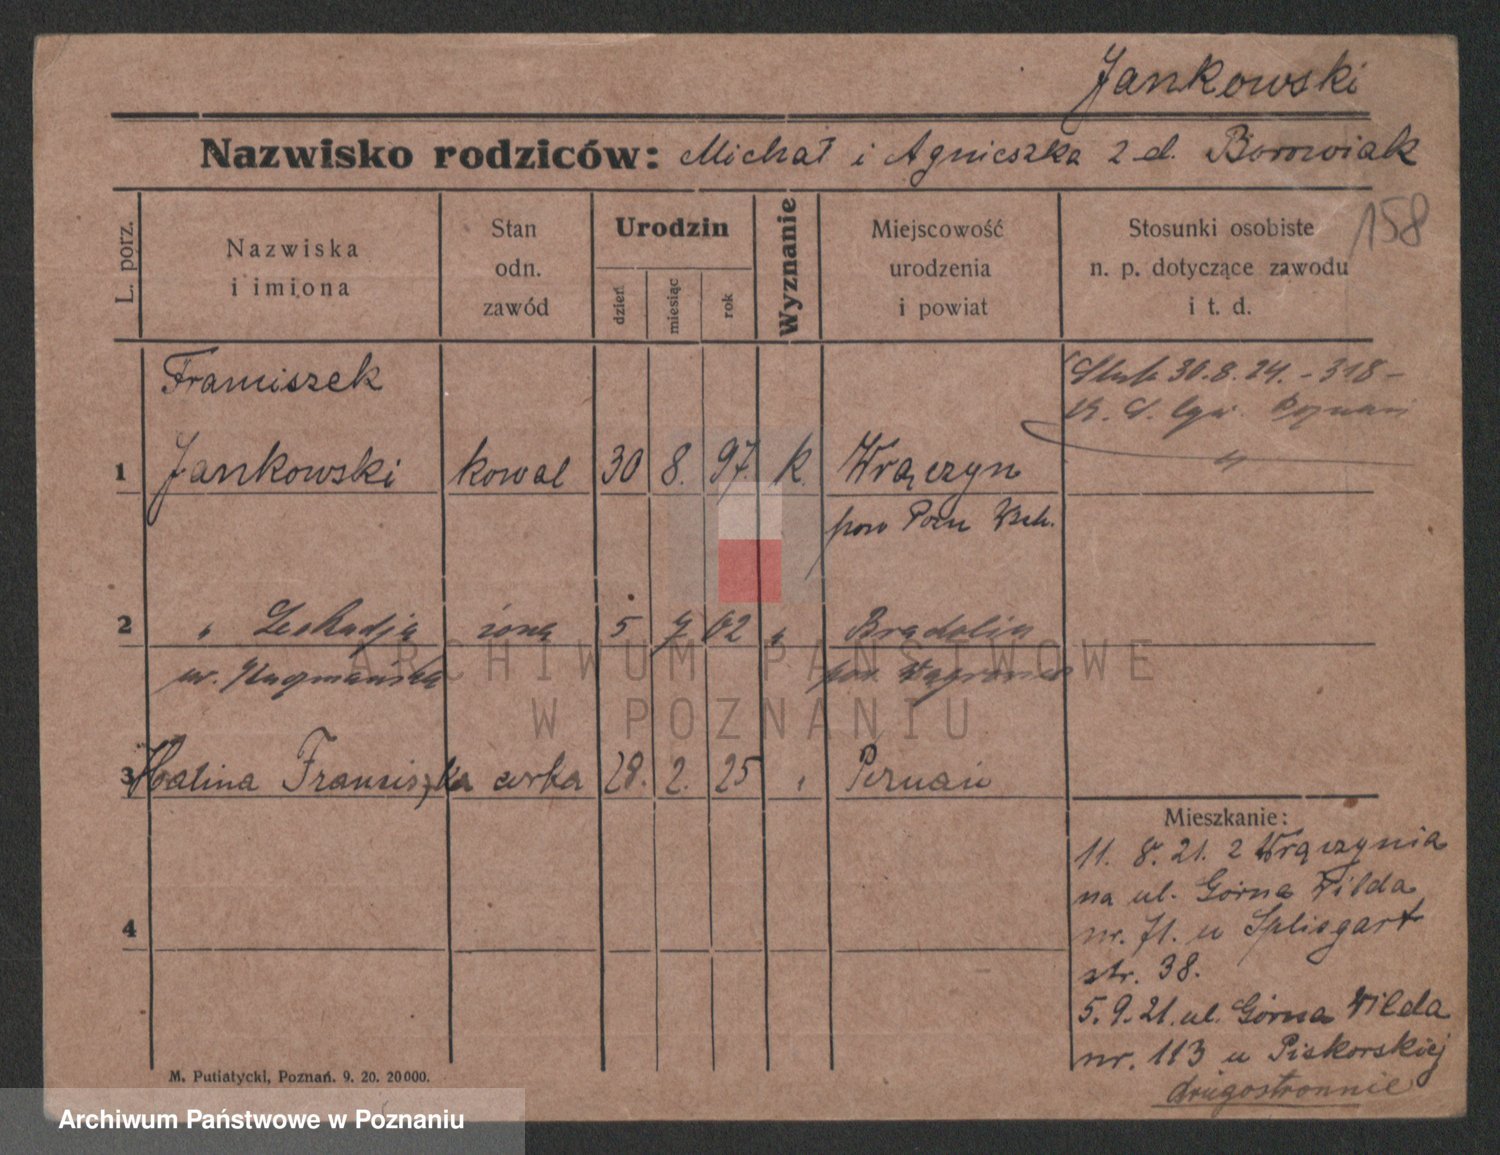 Jankowski
Nazwisko rodziców: Michał i Agnieszka z d. Borowiak
158
L. porz.
Nazwiska i imiona
Stan odn. zawód
Urodzin
dzień
miesiąc
rok
Wyznanie
Miejscowość urodzenia i powiat
Stosunki osobiste n. p. dotyczące zawodu i t. d.
Franciszek
30.8.24. - 318 -
Poznań
1 Jankowski kowal 30 8. 97. k. Wrączyn
pow Pozn Wsch.
2 " Leokadja żona 5 02 "
ur.
pow. Wągrowiec
3 Halina Franciszka córka 28. 2. 25 " Poznań
Mieszkanie:
11. 8. 21. z Wrączynia
na ul. Górna Wilda
nr. 71. u Splisgart
str. 38.
4
5. 9. 21. ul. Górna Wilda
nr. 113 u Piskorskiej
drugostronnie
M. Putiatycki, Poznań. 9. 20. 20000.
ARCHIWUM PAŃSTWOWE
W POZNANIU
Archiwum Państwowe w Poznaniu